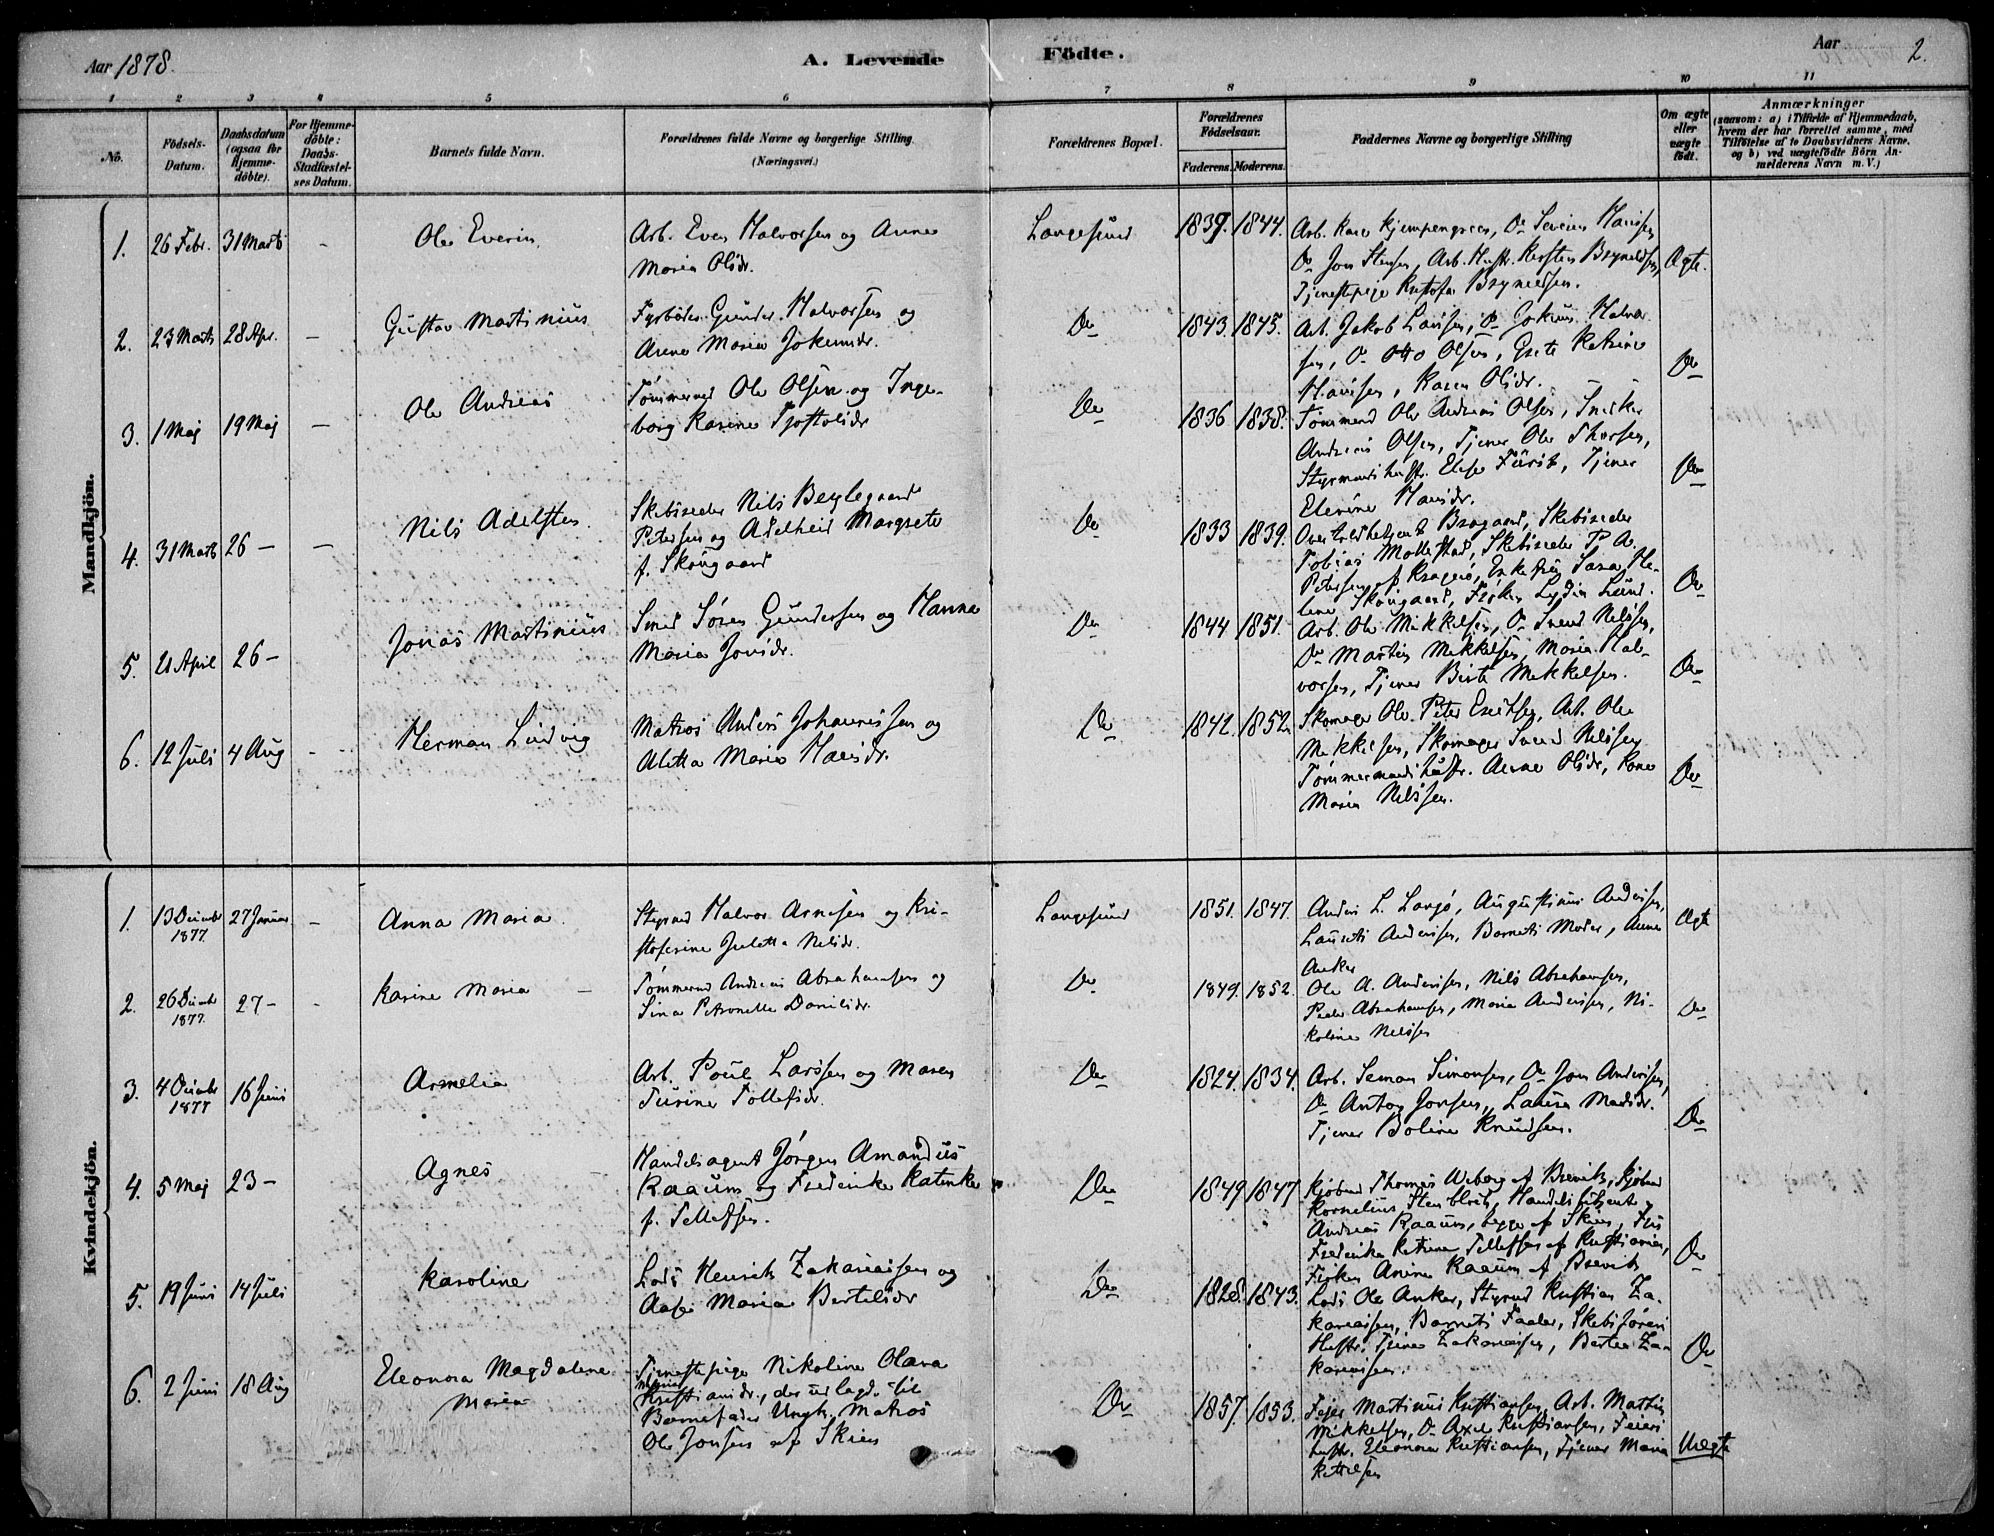 Aar 1878.
A. Levende
Födte.
Aar
2.
1 2 3 4 5 6 7 8 9 10 11
No.
Födsels-Datum.
Daabsdatum (ogsaa for Hjemme-döbte).
For Hjemme-döbte: Daabs-Stadfæstel-ses Datum.
Barnets fulde Navn.
Forældrenes fulde Navne og borgerlige Stilling.
(Næringsvei.)
Forældrenes Bopæl.
Forældrenes Födselsaar.
Faderens. Moderens.
Faddernes Navne og borgerlige Stilling
Om ægte eller uægte födt.
Anmærkninger
(saasom: a) i Tilfælde af Hjemmedaab, hvem der har forrettet samme, med Tilföielse af to Daabsvidners Navne, og b) ved uægtefödte Börn An-melderens Navn m. V.)
Mandkjön.
1. 26 Febr. 31 Marts -
Ole Everin
Arb. Even Halvorsen og Anne
Maria Olsdr.
Langesund
1839. 1844.
Do Jon
Tjenestepige
Ægte.
2. 23 Marts 28 Apr. -
Gustav Martinius
Fyrböder Gunder Halvorsen og
Anne Maria Jokumsdr.
Do
1843. 1845.
Arb. Jakob Larsen, Do Jokum Halvor
sen, Do Otto Olsen, Grete Katrine
Hansen, Karen Olsdr.
Do
3. 1 Maj 19 Maj -
Ole Andreas
Tømmermd Ole Olsen og Inge-
borg Karine Tjostolsdr
Do
1836 1838.
Tømmermd Ole Andreas Olsen, Snedker
Andreas Olsen, Tjener Ole Thorsen,
Styrmands hustr. Elise Fürst, Tjener
Elevine Hansdr.
Do
4. 31 Marts 26 - -
Nils Adelsten
Skibsreder Nils Beylegaard
Petersen og Adelheid Margrete
f. Skougaard
Do
1833 1839.
Skibsreder
Tobias Skibsreder P. A.
Petersen af Kragerø, Enkefru Sara He-
lene Skougaard, Frøken Lydia Lund.
Do
5. 21 April 26 -
Jonas Martinius
Smed Søren Gundersen og Hanna
Maria Jonsdr.
Do
1844 1851.
Arb. Ole Mikkelsen, Do Svend Nelsen,
Do Martin Mikkelsen, Maria Hal-
vorsen, Tjener Birte Mikkelsen.
Do
6. 12 Juli 4 Aug -
Herman Ludvig
Matros Anders Johannessen og
Aletta Maria Hansdr.
Do
1842. 1852
Skomager Ole Peter Eriksen, Arb. Ole
Mikkelsen, Skomager Svend Nelsen
Tømmermands hustr. Anne Olsdr, Kone
Maria Nilssen.
Do
Kvindekjön.
1. 13 Decembr 1877. 27 Januar -
Anna Maria
Styrmd Halvor Arnesen og Kri-
stoferine Juletta Nilsdr.
Langesund
1851. 1847.
Anders L. Langø, Augustinus Andersen,
Laurits Andersen, Barnets Moder, Anne
Anker
Ægte
2. 26 Decbr 1877. 27 - -
Karine Maria -
Tømmermd Andreas Abrahamsen og
Sina Petronelle Danilsdr.
Do
1849. 1852.
Ole A. Andersen, Nils Abrahamsen,
Peder Abrahamsen, Maria Andersen, Ni-
koline Nilsen
Do
3. 4 Decembr 1877 16 Juni
Armelia
Arb. Poul Larsen og Maren
Turine Tollefsdr.
Do
1824. 1834.
Arb. Seman Simonsen, Do Jon Andersen,
Do Anton Jonsen, Laura Madsdr.
Tjener Boline Knudsen.
Do
4. 5 Maj 23 -
Agnes -
Handelsagent Jørgen Amandus
Raaum og Frederike Katinka
f. Tellefsen.
Do
1849 1847
Kjøbmd Thomas Wiborg af Brevik, Kjøbmd
Kornelius Stenblok, Handelsfuldm.
Andreas Raaum, begge af Skien, Fru
Frederike Katrine Tellefsen af Kristiania,
Frøken Anine Raaum af Brevik
Do
5. 19 Juni 14 Juli
Karoline
Lods Henrik Zakariassen og
Aase Maria Bertelsdr
Do
1828. 1843.
Lods Ole Anker, Styrmd Kristian Za-
kariassen, Barnets Fader, Skibsførers
Hustr. Trine Zakariassen, Bertea Za-
kariassen.
Do
6. 2 Juni 18 Aug
Eleonora Magdalene
Maria
Tjenestepige Nikoline Olava
Maria
Kristiansdr., der udlagde til
Barnefader Ungk. Matros
Ole Jonsen af Skien
Do
1857. 1853.
Fejer Martinius Kristiansen, Arb. Martin
Mikkelsen, Do Axel Kristiansen, Feiers
hustr. Eleonora Kristiansen, Tjener Maria
Kittelsen
Uægte